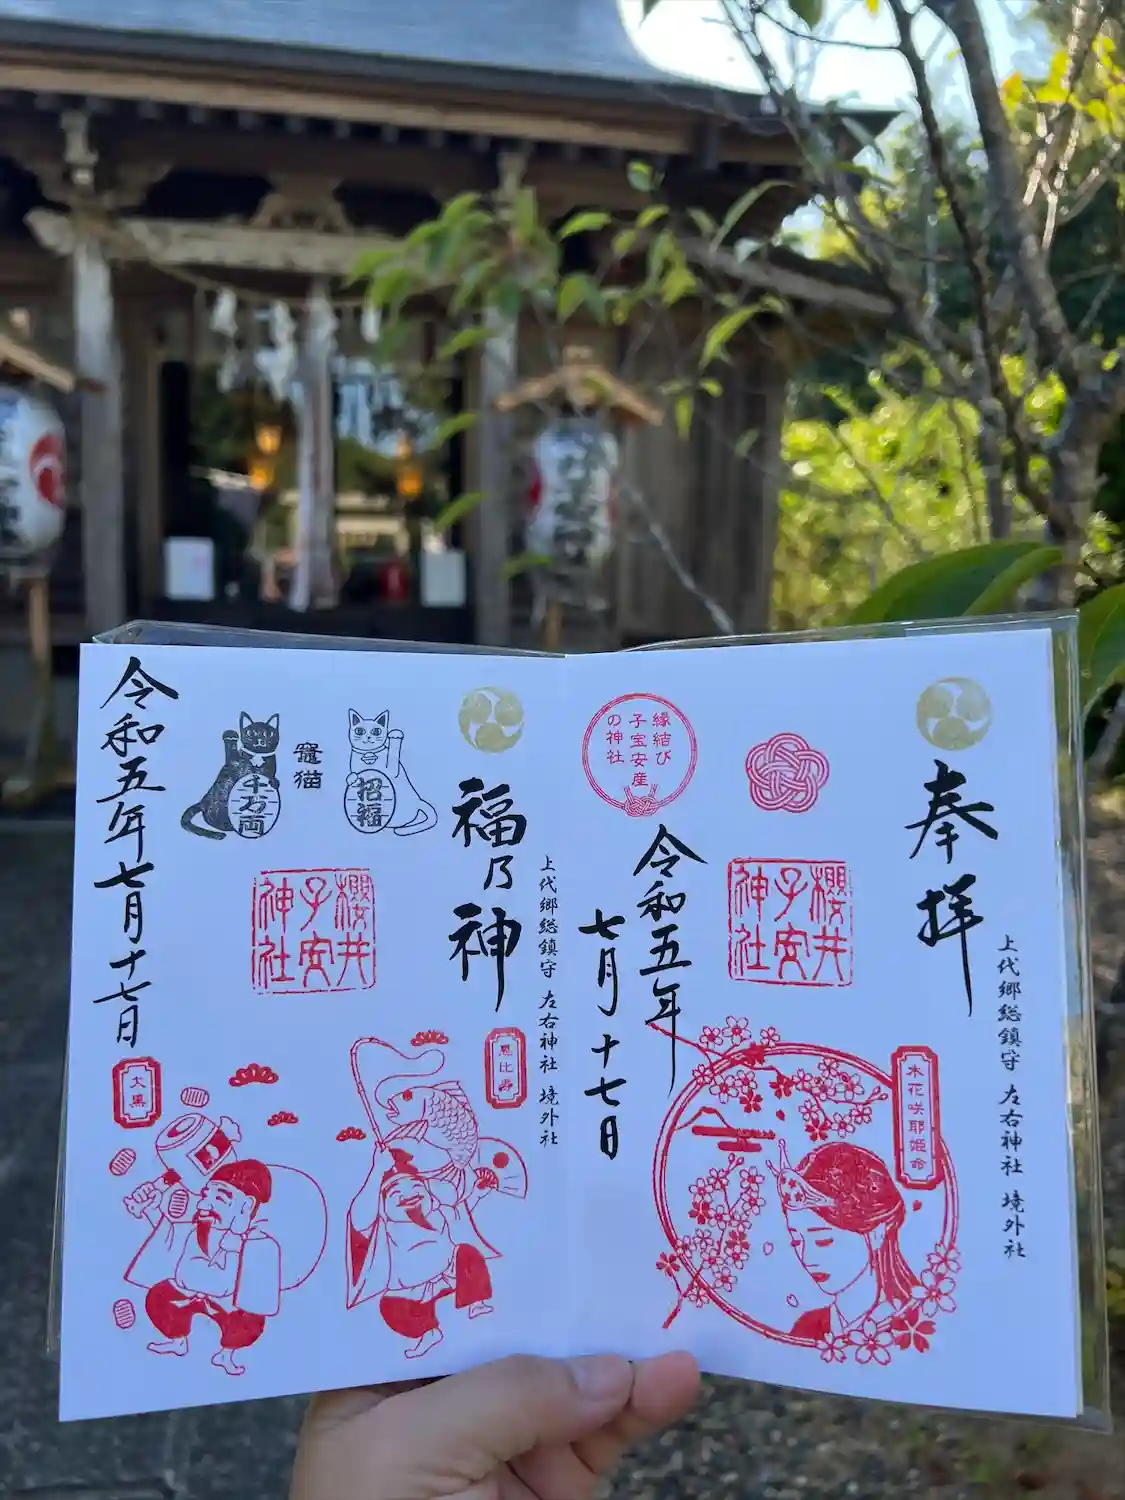 奉拝
上代郷総鎮守 左右神社 境外社
縁結び
子宝安産
の神社
櫻井
子安
神社
木花咲耶姫命
令和五年
七月十七日
福乃神
上代郷総鎮守 左右神社 境外社
招福
竈猫
千万両
櫻井
子安
神社
恵比寿
大黒
令和五年七月十七日